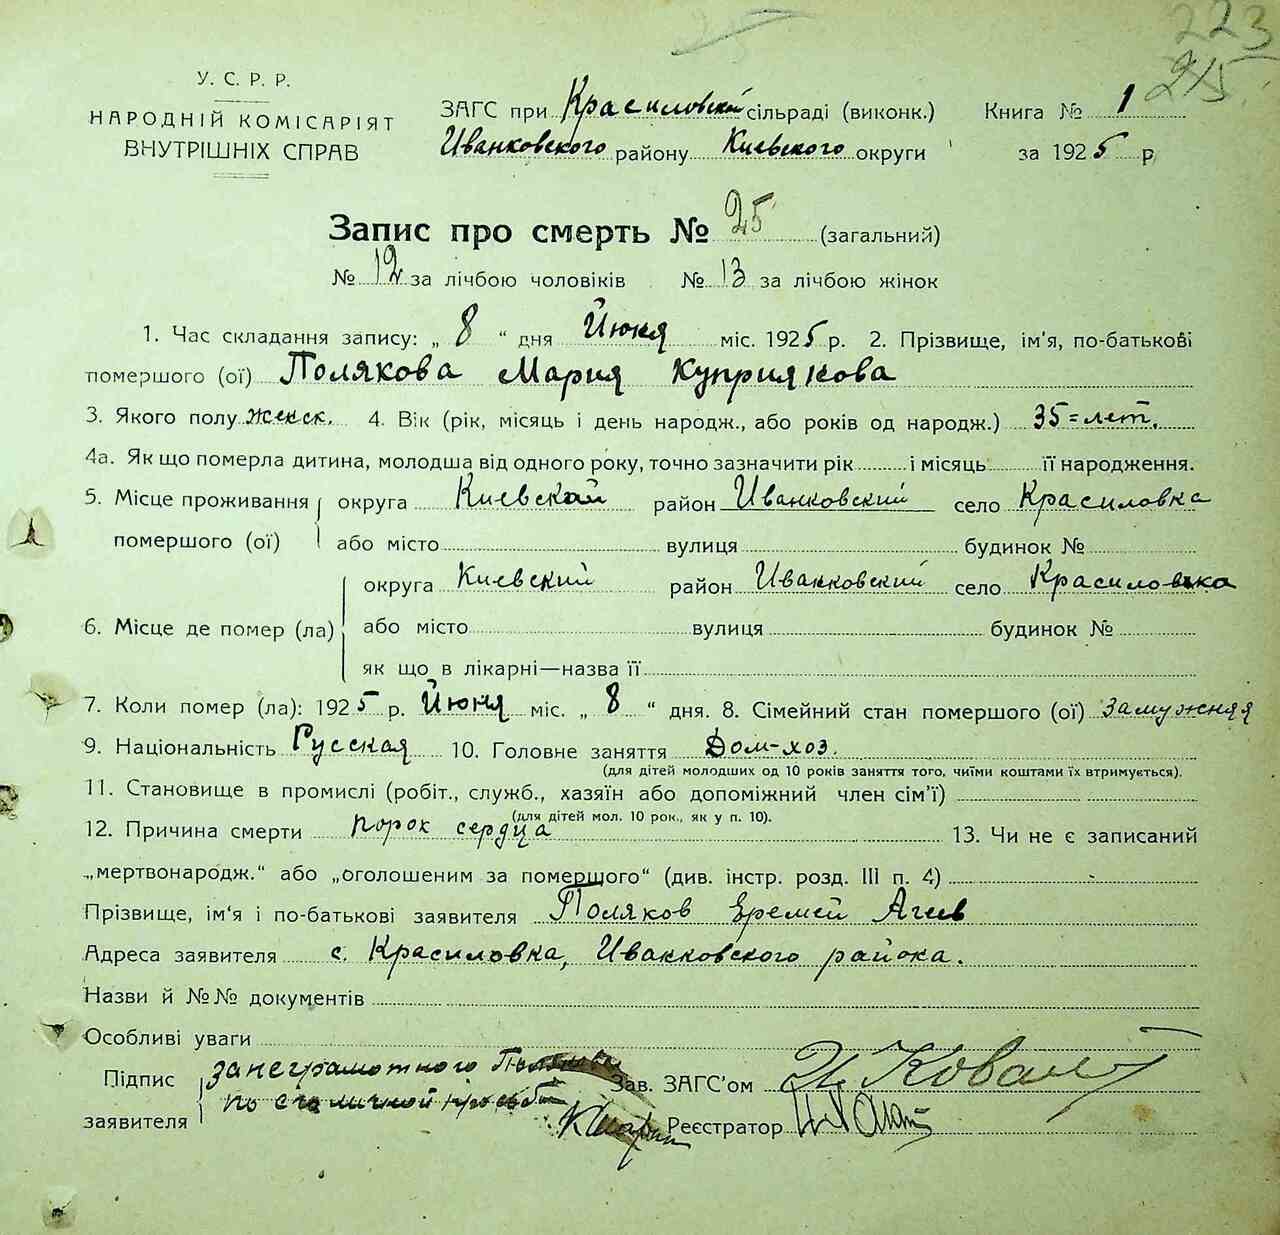 223
215
25
У. С. Р. Р.
НАРОДНІЙ КОМІСАРІЯТ
ВНУТРІШНІХ СПРАВ
ЗАГС при Красиловской сільраді (виконк.) Книга № 1
Иванковского району Киевского округи за 1925 р
Запис про смерть № 25 (загальний)
№ 12 за лічбою чоловіків № 13 за лічбою жінок
1. Час складання запису: „ 8 “ дня Июня міс. 1925 р. 2. Прізвище, ім'я, по-батькові
помершого (ої) Полякова Мария Куприянова
3. Якого полу женск. 4. Вік (рік, місяць і день народж., або років од народж.) 35=лет.
4а. Як що померла дитина, молодша від одного року, точно зазначити рік і місяць її народження.
5. Місце проживання округа Киевской район Иванковский село Красиловка
помершого (ої) або місто вулиця будинок №
округа Киевский район Иванковский село Красиловка
6. Місце де помер (ла) або місто вулиця будинок №
як що в лікарні—назва її
7. Коли помер (ла): 1925 р. Июня міс. „ 8 “ дня. 8. Сімейний стан помершого (ої) Замужняя
9. Національність Русская 10. Головне заняття Дом-хоз.
(для дітей молодших од 10 років заняття того, чиїми коштами їх втримується).
11. Становище в промислі (робіт., служб., хазяїн або допоміжний член сім'ї)
(для дітей мол. 10 рок., як у п. 10).
12. Причина смерти порок сердца 13. Чи не є записаний
„мертвонародж.“ або „оголошеним за помершого“ (див. інстр. розд. III п. 4)
Прізвище, ім'я і по-батькові заявителя Поляков Еремей Агеев
Адреса заявителя с. Красиловка, Иванковского района.
Назви й №№ документів
Особливі уваги
Підпис занеграмотного Зав. ЗАГС'ом Коваль
по его личной просьбе
заявителя Реєстратор